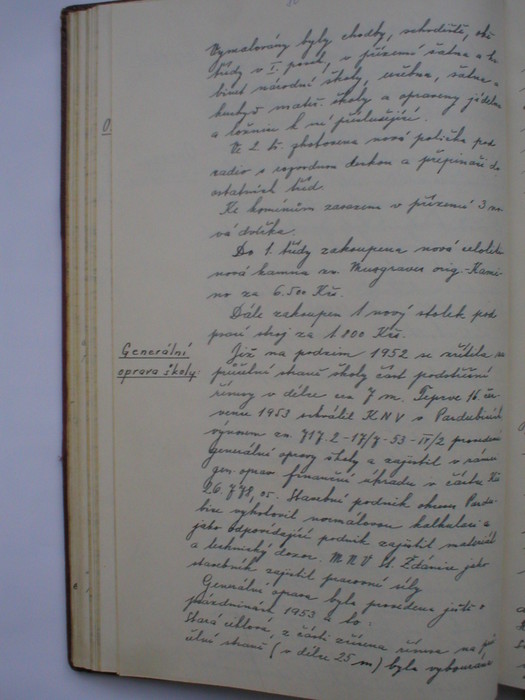 Vymalovány byly chodby, schodiště, obě
třídy v I. posch., v přízemí šatna a ka-
binet národní školy, učebna, šatna a
kuchyň mateř. školy a opraveny jídelna
a ložnice k ní příslušející.
Ve 2. tř. zhotovena nová polička pod
radio s rozvodnou deskou a přepínači do
ostatních tříd.
Ke komínům zasazena v přízemí 3 no-
vá dvířka.
Do 1. třídy zakoupena nová celolit-
nová kamna zn. Musgraves orig.-Kami-
no za 6.500 Kčs.
Dále zakoupen 1 nový stolek pod
psací stroj za 1.800 Kčs.
Generální
oprava školy:
Již na podzim 1952 se zřítila na
průčelné straně školy část podstřešní
římsy v délce cca 7 m. Teprve 16. čer-
vence 1953 schválil KNV v Pardubicích
výnosem zn. 717.2-17/7-53-IV/2 provedení
generální opravy školy a zajistil v rámci
gen. oprav finanční úhradu v částce Kčs
26.778,05. Stavební podnik okresu Pardu-
bice vyhotovil normálovou kalkulaci a
jako odpovídající podnik zajistil materiál
a technický dozor. MNV St. Ždánice jako
stavebník zajistil pracovní síly.
Generální oprava byla provedena ještě o
prázdninách 1953 a to:
Stará cihlová, z části zřícená římsa na prů-
čelné straně (v délce 25 m) byla vybourána